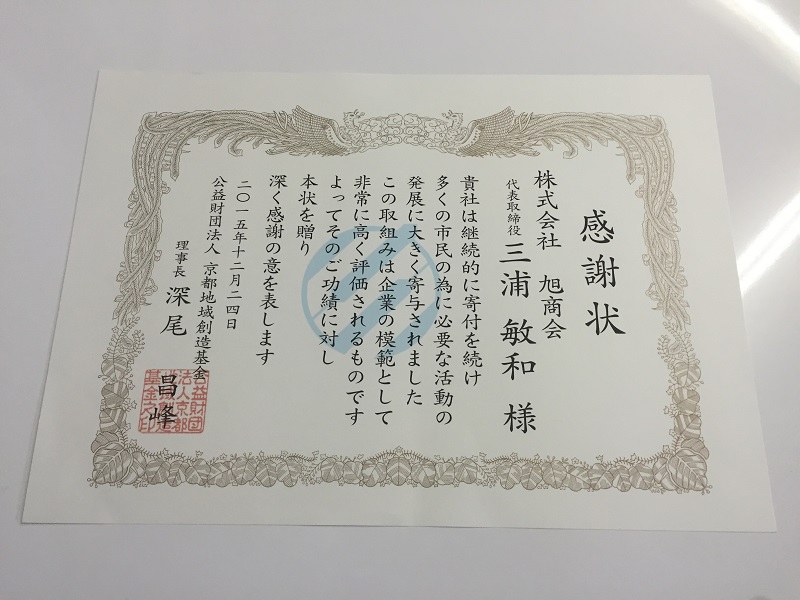 感謝状
株式会社 旭商会
代表取締役 三浦 敏和 様
貴社は継続的に寄付を続け
多くの市民の為に必要な活動の
発展に大きく寄与されました
この取組みは企業の模範として
非常に高く評価されるものです
よってそのご功績に対し
本状を贈り
深く感謝の意を表します
二〇一五年十二月二四日
公益財団法人 京都地域創造基金
理事長 深尾 昌峰
公益財団
法人京都
地域創造
基金之印